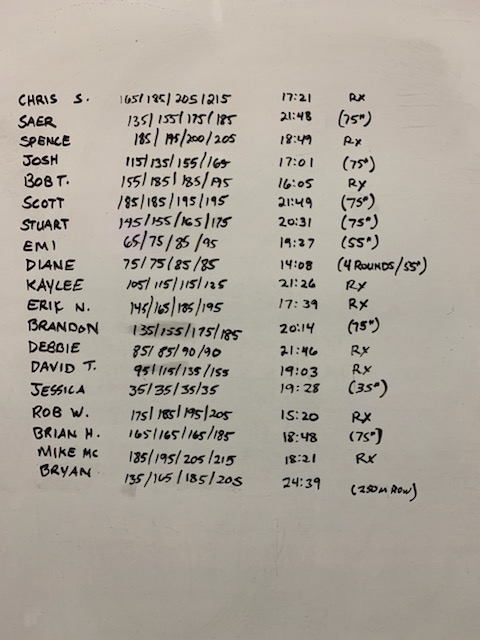 CHRIS S. 165/185/205/215 17:21 Rx
SAER 135/155/175/185 21:48 (75#)
SPENCE 185/195/200/205 18:49 Rx
JOSH 115/135/155/165 17:01 (75#)
BOB T. 155/185/185/195 16:05 Rx
SCOTT 185/185/195/195 21:49 (75#)
STUART 145/155/165/175 20:31 (75#)
EMI 65/75/85/95 19:27 (55#)
DIANE 75/75/85/85 14:08 (4 ROUNDS/55#)
KAYLEE 105/115/115/125 21:26 Rx
ERIK N. 145/165/185/195 17:39 Rx
BRANDON 135/155/175/185 20:14 (75#)
DEBBIE 85/85/90/90 21:46 Rx
DAVID T. 95/115/135/155 19:03 Rx
JESSICA 35/35/35/35 19:28 (35#)
ROB W. 175/185/195/205 15:20 Rx
BRIAN H. 165/165/165/185 18:48 (75#)
MIKE MC 185/195/205/215 18:21 Rx
BRYAN 135/165/185/205 24:39 (250M ROW)